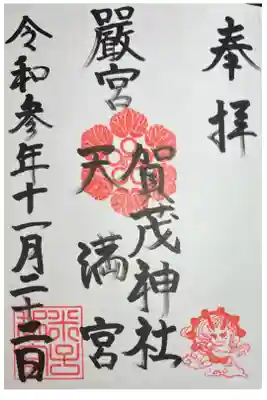 奉拝
賀茂神社
嚴宮
天満宮
令和参年十一月二十二日